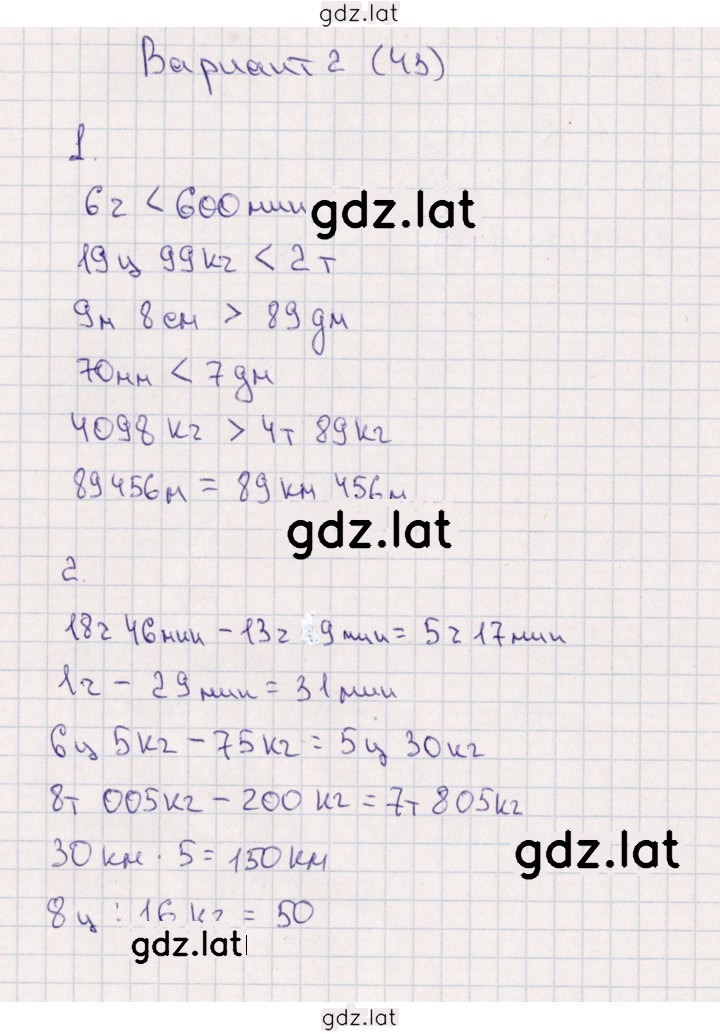 gdz.lat
Вариант 2 (43)
1.
6 ч < 600 мин gdz.lat
19 ц 99 кг < 2 т
9 м 8 см > 89 дм
70 мм < 7 дм
4098 кг > 4 т 89 кг
89456 м = 89 км 456 м
gdz.lat
2.
18 ч 46 мин - 13 ч 9 мин = 5 ч 17 мин
1 ч - 29 мин = 31 мин
6 ц 5 кг - 75 кг = 5 ц 30 кг
8 т 005 кг - 200 кг = 7 т 805 кг
30 км · 5 = 150 км gdz.lat
8 ц : 16 кг = 50
gdz.lat
gdz.lat